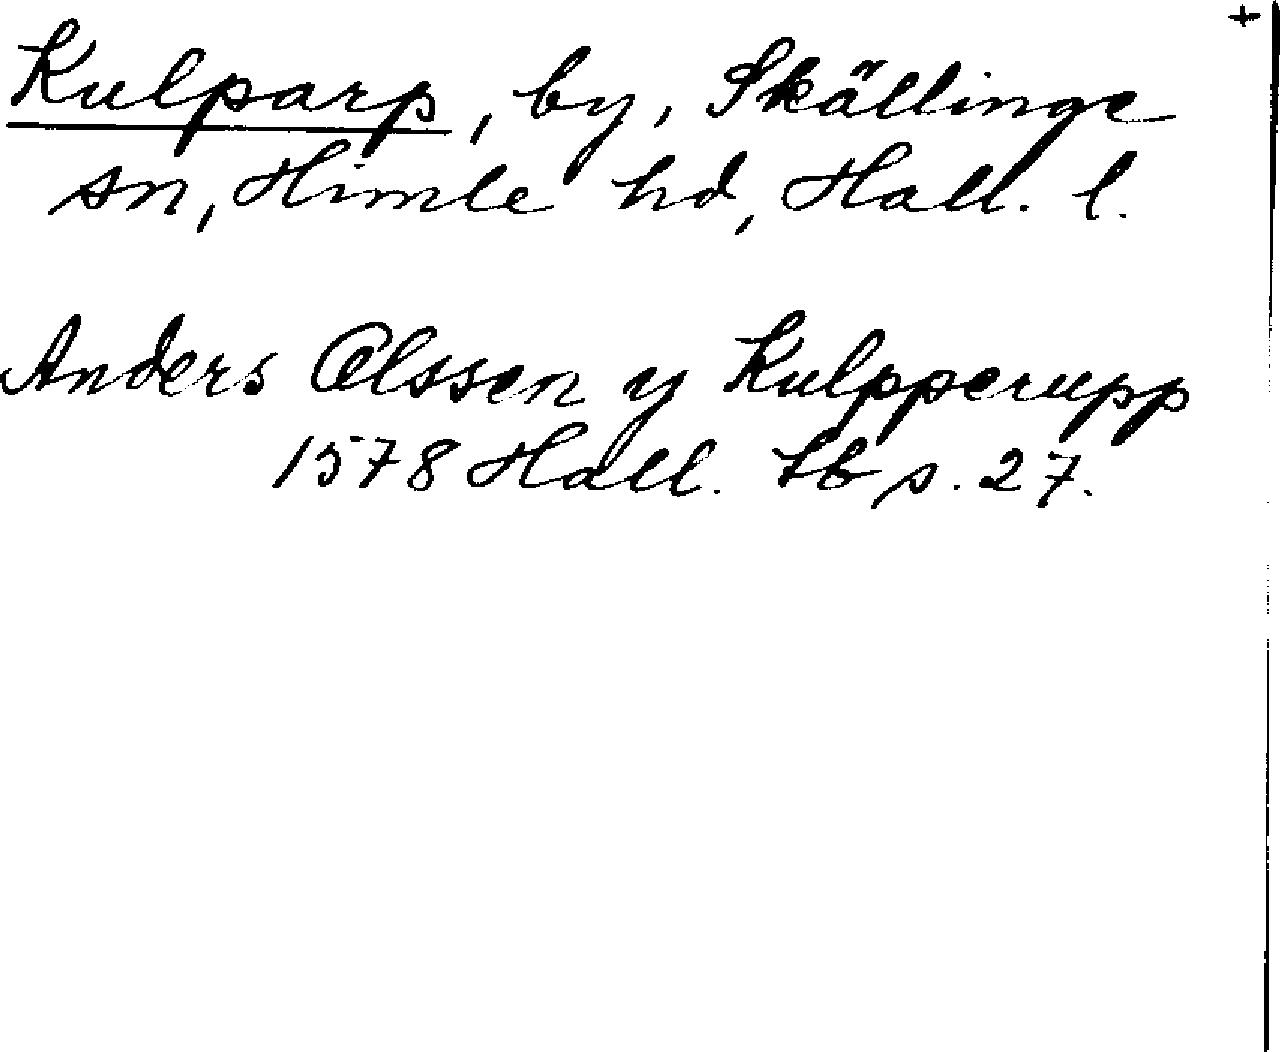 +
Kulparp, by, Skällinge
sn, Himle hd, Hall. l.
Anders Olssen y Kulpperupp
1578 Hall. Lb s. 27.